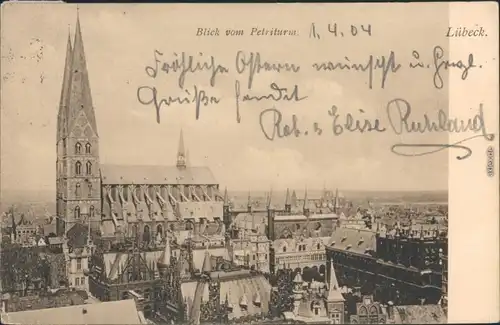 Blick vom Petriturm. 1.4.04 Lübeck.
Fröhliche Ostern wünscht u. herzl.
Grüße sendet
Rob. & Elise Ruhland